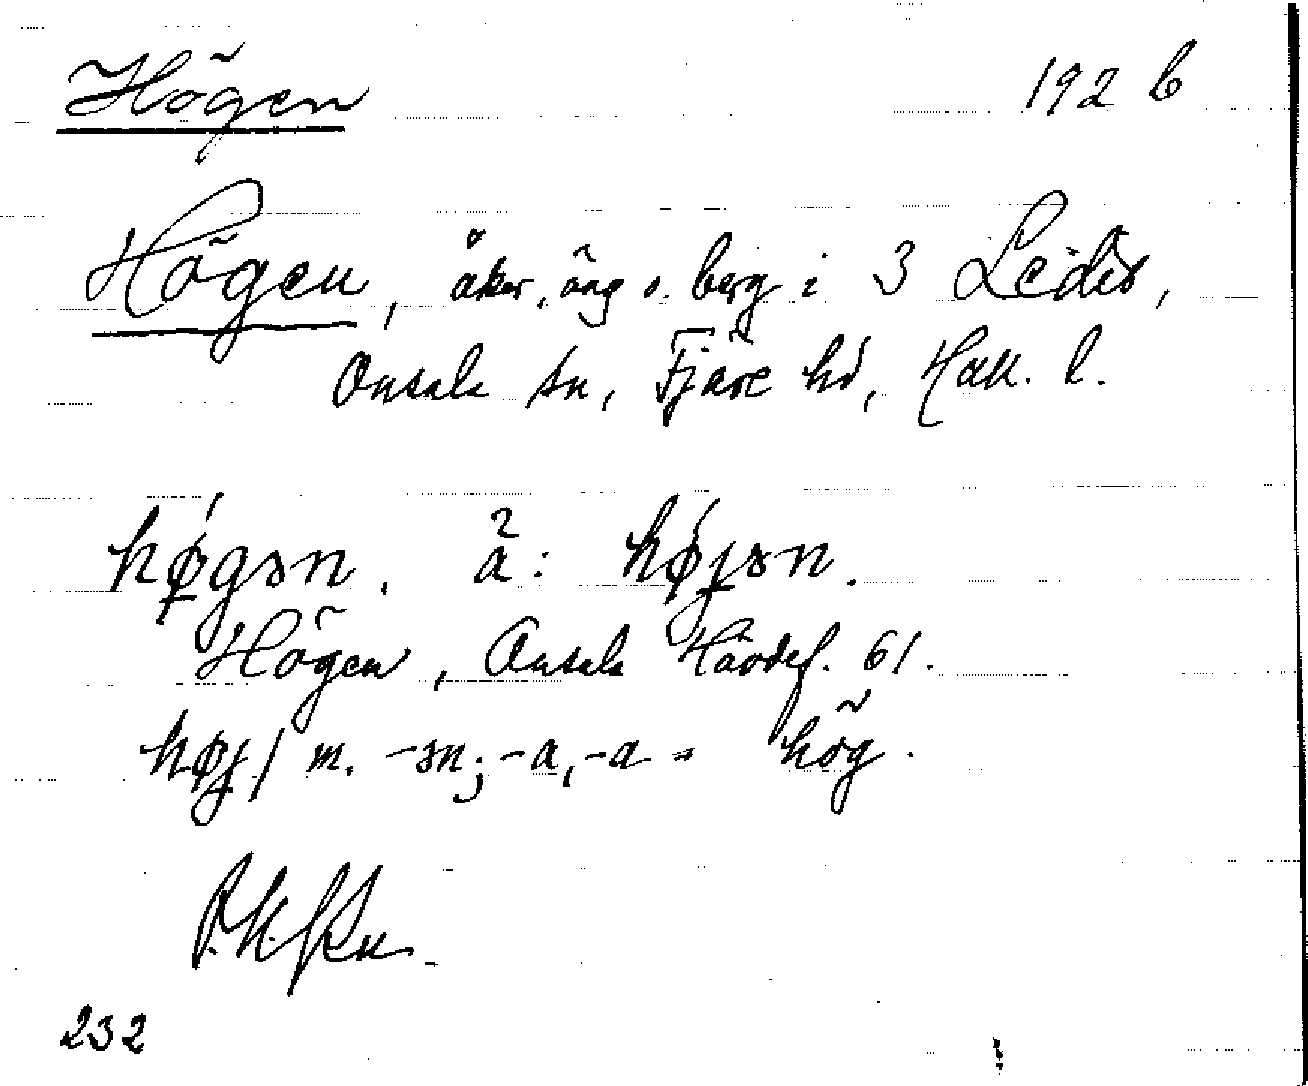 Högen 192 b
Högen, åker, äng o. berg i 3 Leidis,
Onsala sn, Fjäre hd, Hall. l.
hǿgən. å: hǿjən.
Högen, Onsala Häradsf. 61.
høj/ m. -ən; -a, -a = hög.
232